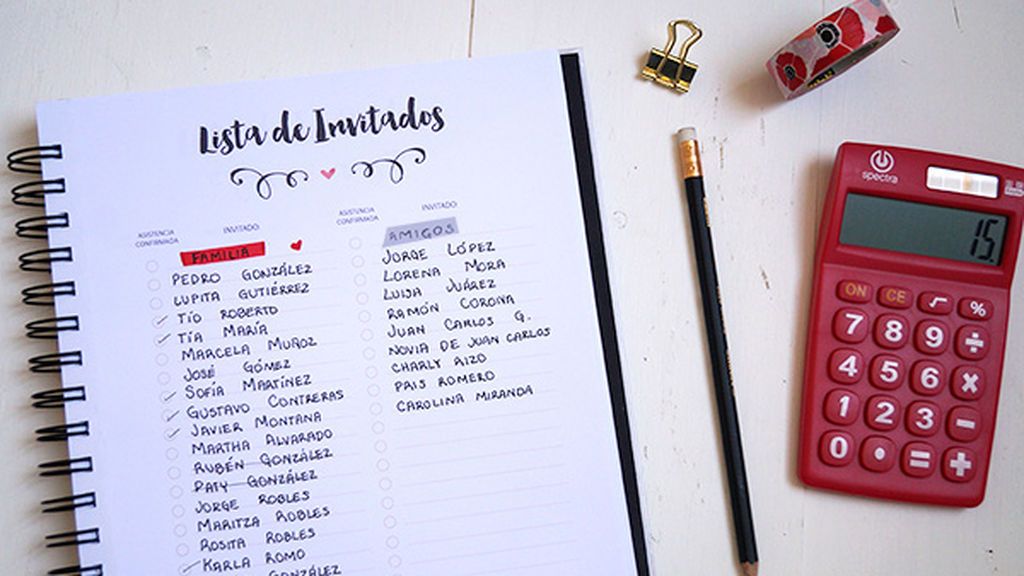 Lista de Invitados
ASISTENCIA CONFIRMADA INVITADO
FAMILIA
PEDRO GONZÁLEZ
LUPITA GUTIÉRREZ
TÍO ROBERTO
TÍA MARÍA
MARCELA MUÑOZ
JOSÉ GÓMEZ
SOFÍA MARTÍNEZ
GUSTAVO CONTRERAS
JAVIER MONTANA
MARTHA ALVARADO
RUBÉN GONZÁLEZ
PATY GONZÁLEZ
JORGE ROBLES
MARITZA ROBLES
ROSITA ROBLES
KARLA ROMO
GONZÁLEZ
ASISTENCIA CONFIRMADA INVITADO
AMIGOS
JORGE LÓPEZ
LORENA MORA
LUISA JUÁREZ
RAMÓN CORONA
JUAN CARLOS G.
NOVIA DE JUAN CARLOS
CHARLY RIZO
PAIS ROMERO
CAROLINA MIRANDA
spectra
15.
ON CE √ %
7 8 9 ÷
4 5 6 ×
1 2 3 −
0 • = +